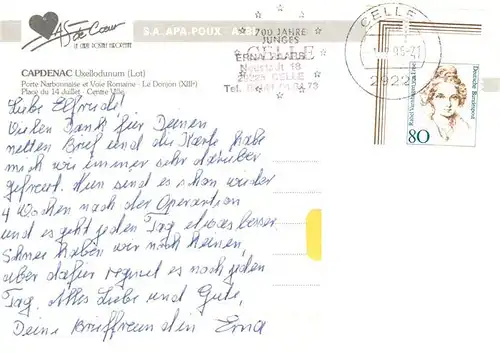 As de Cœur
LE CARTE POSTALE EUROPEENNE
S.A. APA-POUX - ALBI
CAPDENAC Uxellodunum (Lot)
Porte Narbonnaise et Voie Romaine - Le Donjon (XIIIe)
Place du 14 Juillet Centre Ville
700 JAHRE
JUNGES
CELLE
CELLE
2922
Deutsche Bundespost
80
Lieber Elfriede!
Vielen Dank für Deinen
netten Brief und die Karte, habe
mich wie immer sehr darüber
gefreut. Nun sind es schon wieder
4 Wochen nach der Operation
und es geht jeden Tag etwas besser.
Schnee haben wir noch keinen,
aber dafür regnet es noch jeden
Tag. Alles Liebe und Gute,
Deine Brieffreundin Erna